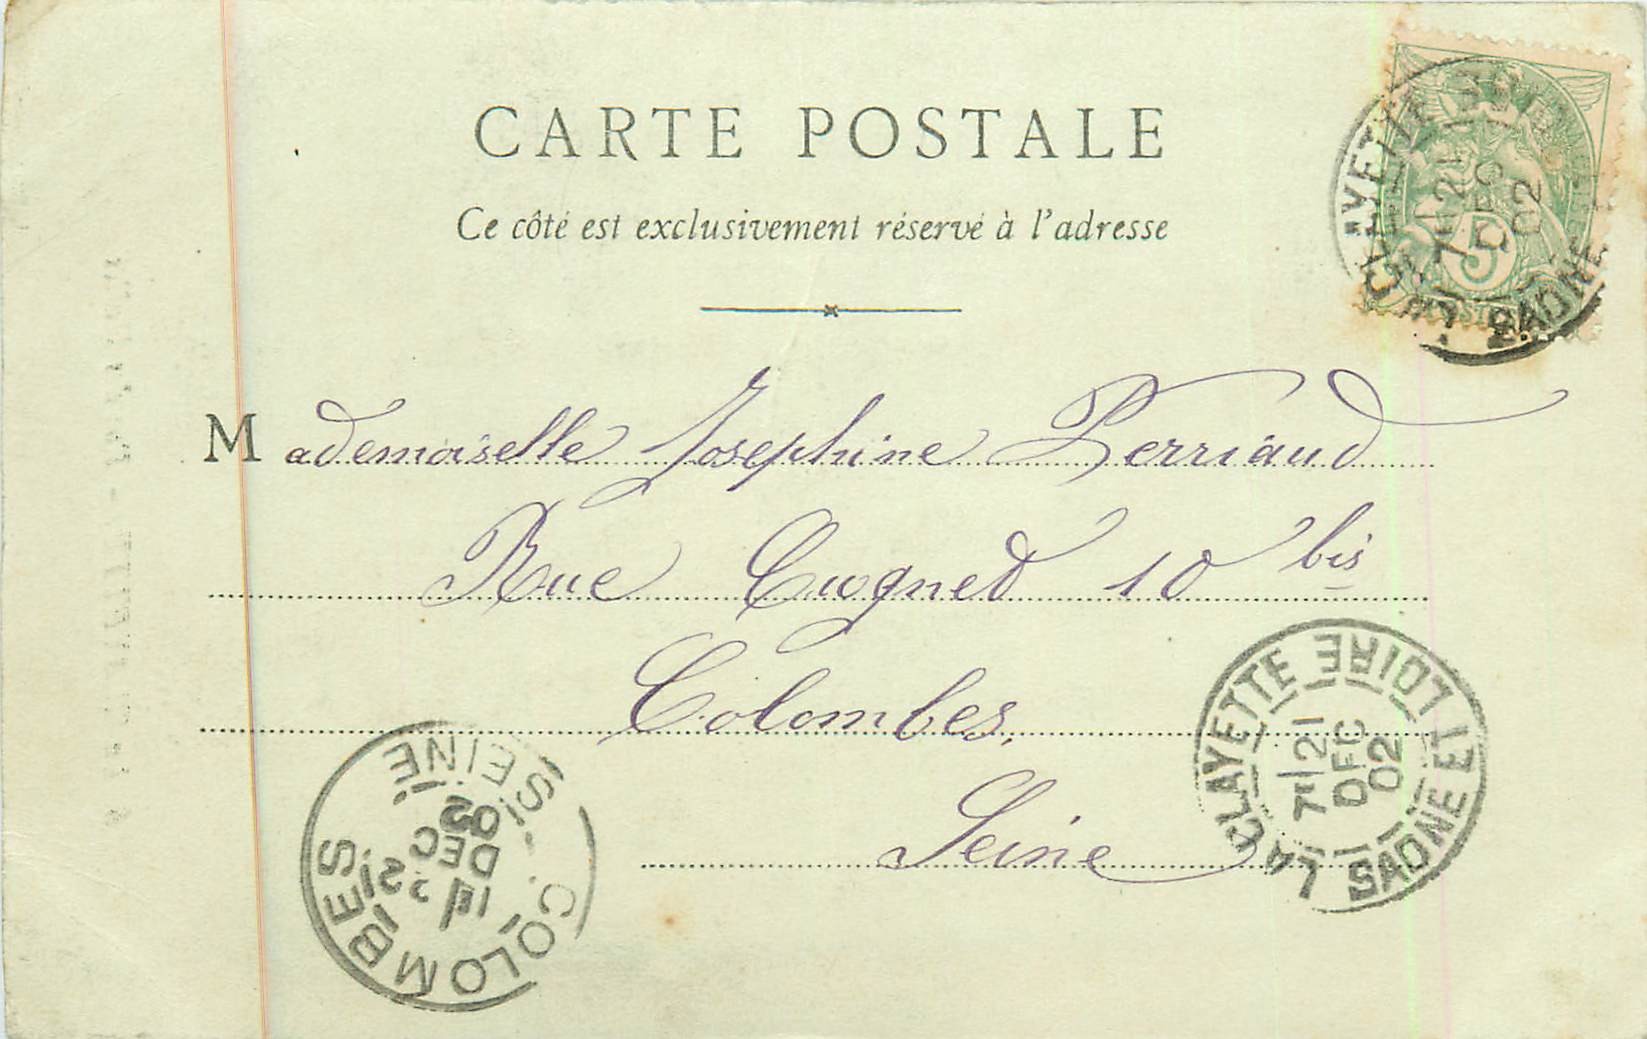 CARTE POSTALE
Ce côté est exclusivement réservé à l'adresse
LA CLAYETTE SAONE
7E 21
DEC
02
5
Mademoiselle Josephine Perriaud
Rue Cugned 10 bis
Colombes,
Seine
LA CLAYETTE SAONE ET LOIRE
7E 21
DEC
02
COLOMBES SEINE
DEC
02